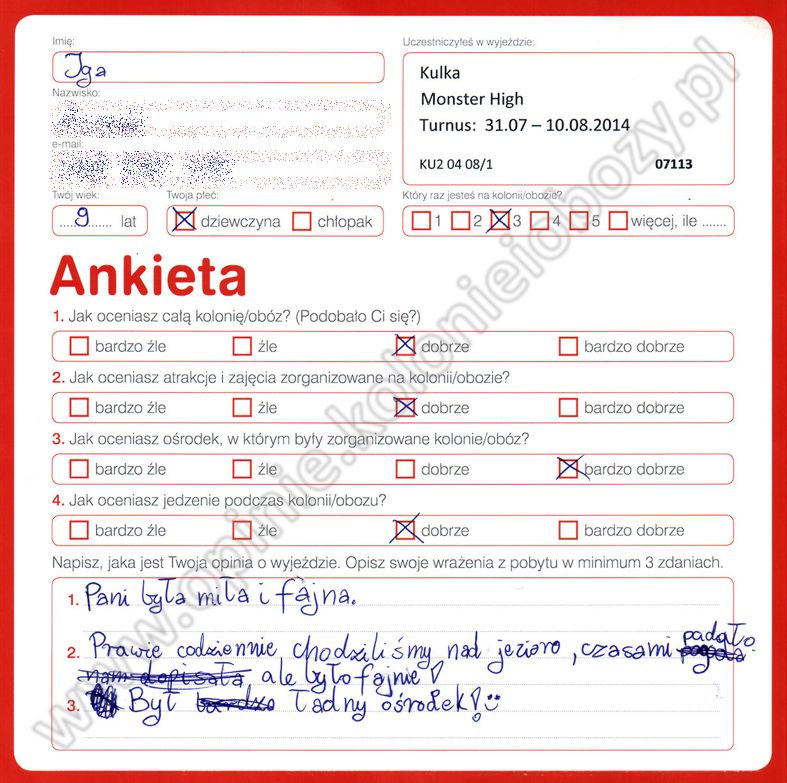 Imię:
Uczestniczyłeś w wyjeździe:
Iga
Kulka
Monster High
Turnus: 31.07 – 10.08.2014
KU2 04 08/1 07113
Nazwisko:
e-mail:
Twój wiek: Twoja płeć: Który raz jesteś na kolonii/obozie?
.....9....... lat dziewczyna chłopak 1 2 3 4 5 więcej, ile .......
Ankieta
1. Jak oceniasz całą kolonię/obóz? (Podobało Ci się?)
bardzo źle źle dobrze bardzo dobrze
2. Jak oceniasz atrakcje i zajęcia zorganizowane na kolonii/obozie?
bardzo źle źle dobrze bardzo dobrze
3. Jak oceniasz ośrodek, w którym były zorganizowane kolonie/obóz?
bardzo źle źle dobrze bardzo dobrze
4. Jak oceniasz jedzenie podczas kolonii/obozu?
bardzo źle źle dobrze bardzo dobrze
Napisz, jaka jest Twoja opinia o wyjeździe. Opisz swoje wrażenia z pobytu w minimum 3 zdaniach.
1. Pani była miła i fajna.
2. Prawie codziennie chodziliśmy nad jezioro, czasami padało
pogoda
nam dopisała ale było fajnie!
3. Był bardzo ładny ośrodek!
www.opinie.kolonieiobozy.pl